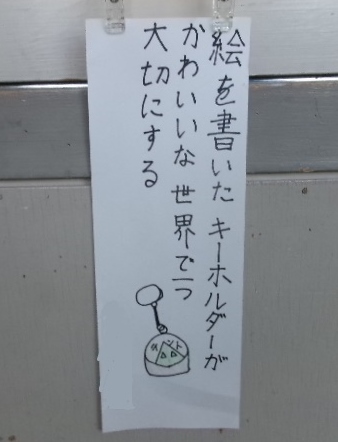 絵を書いたキーホルダーが
かわいいな世界で一つ
大切にする
タント